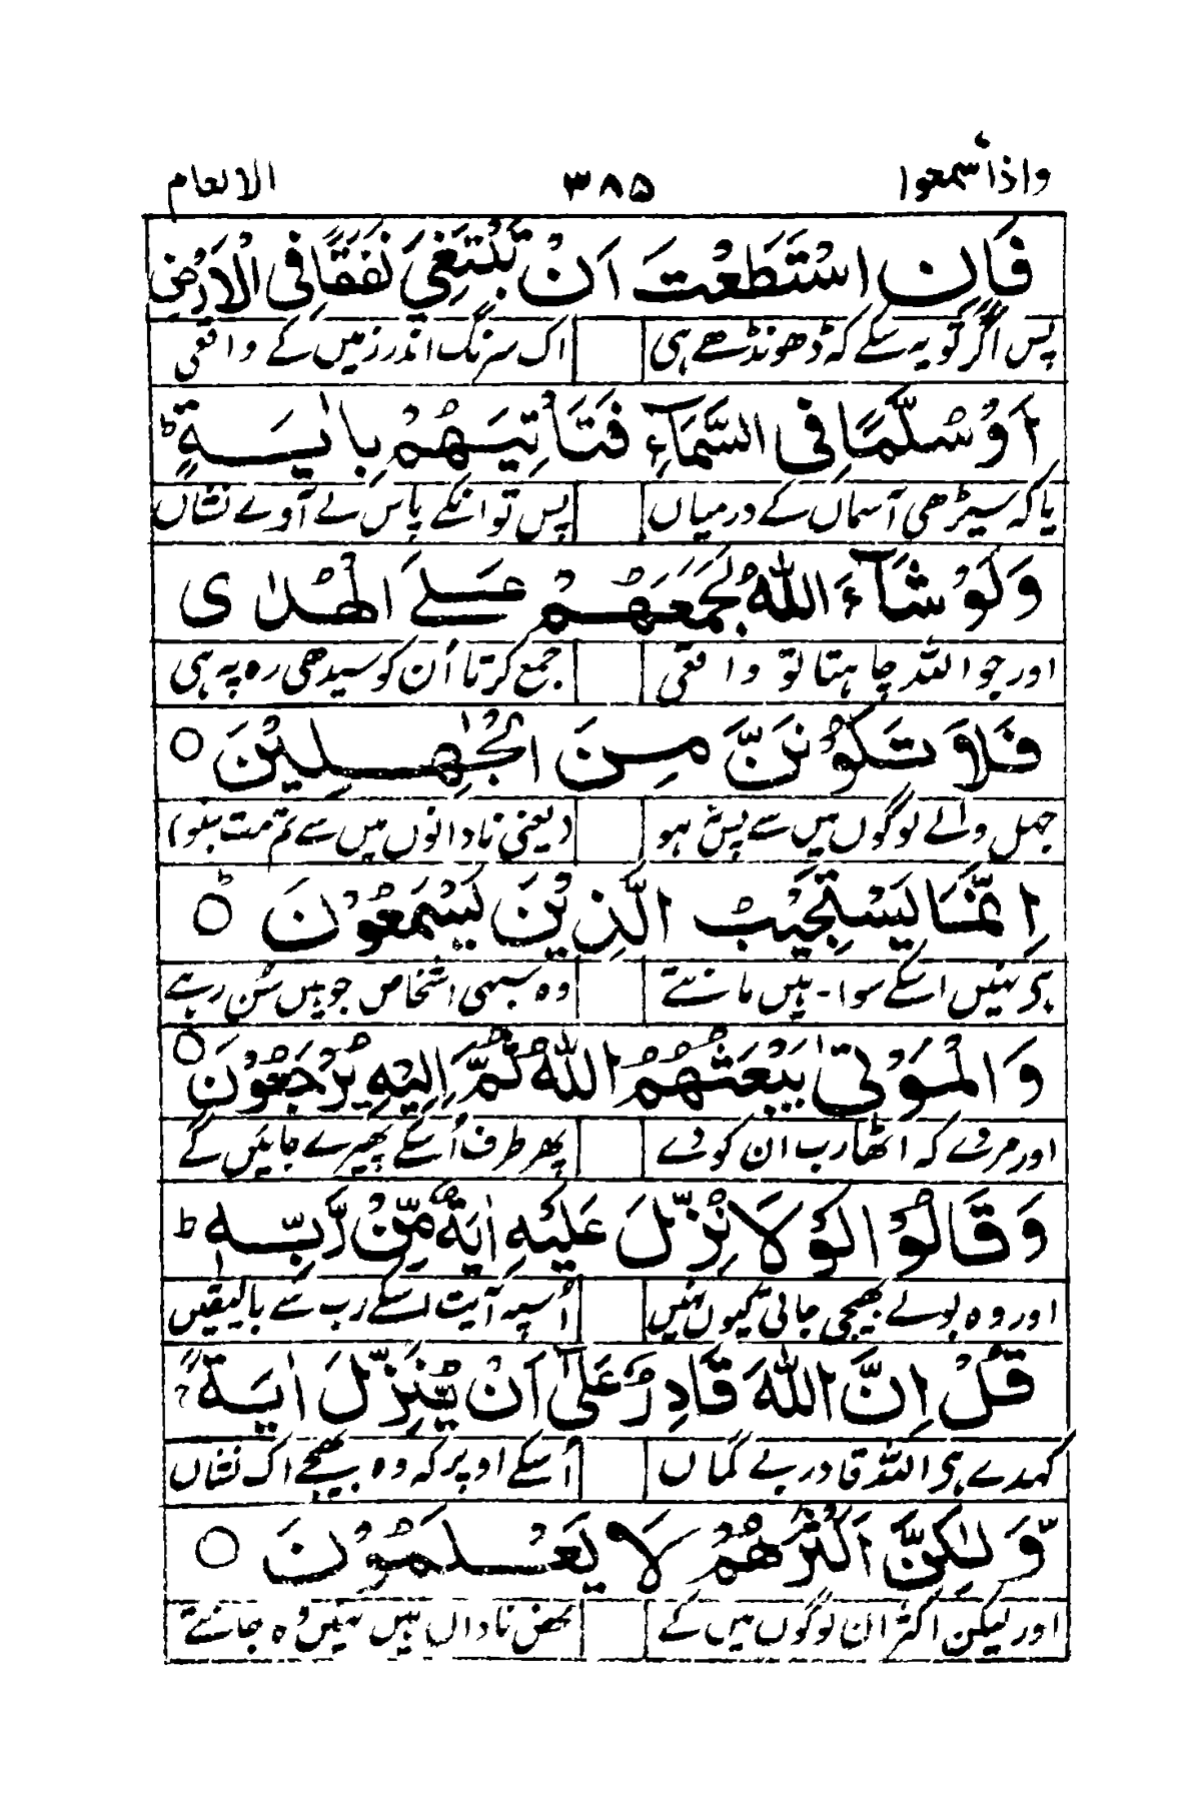 واذا سمعوا ۳۸۵ الانعام
فَاِنِ اسْتَطَعْتَ اَنْ تَبْتَغِيَ نَفَقًا فِى الْاَرْضِ
پس اگر تو یہ سکے کہ ڈھونڈھے ہی اک سرنگ اندر زمیں کے واقعی
اَوْ سُلَّمًا فِى السَّمَآءِ فَتَاْتِيَهُمْ بِاٰيَةٍ ؕ
یا کہ سیڑھی آسماں کے درمیاں پس تو انکے پاس لے آوے نشاں
وَلَوْ شَآءَ اللّٰهُ لَجَمَعَهُمْ عَلَے الْهُدٰى
اور جو اللہ چاہتا تو واقعی جمع کرتا اُن کو سیدھی رہ پہ ہی
فَلَا تَكُوْنَنَّ مِنَ الْجٰهِلِيْنَ ○
جہل والے لوگوں میں سے پس نہ ہو (یعنی نادانوں میں سے تم مت بنو)
اِنَّمَا يَسْتَجِيْبُ الَّذِيْنَ يَسْمَعُوْنَ ○ؕ
ہی نہیں اسکے سوا۔ ہیں مانتے وہ سبھی اشخاص جو ہیں سُن رہے
وَالْمَوْتٰى يَبْعَثُهُمُ اللّٰهُ ثُمَّ اِلَيْهِ يُرْجَعُوْنَ ○
اور مردے کہ اٹھا رب ان کو دے پھر طرف اُسکے پھیرے جائیں گے
وَقَالُوْا لَوْلَا نُزِّلَ عَلَيْهِ اٰيَةٌ مِّنْ رَّبِّهٖ ؕ
اور وہ بولے بھیجی جاتی کیوں نہیں اُسپہ آیت اسکے رب سے بالیقیں
قُلْ اِنَّ اللّٰهَ قَادِرٌ عَلٰٓى اَنْ يُّنَزِّلَ اٰيَةً
کہدے ہی اللہ قادر بے گماں اُسکے اوپر کہ وہ بھیجے اک نشاں
وَّلٰكِنَّ اَكْثَرَهُمْ لَا يَعْلَمُوْنَ ○
اور لیکن اکثر ان لوگوں میں کے محض ناداں ہیں نہیں وہ جانتے